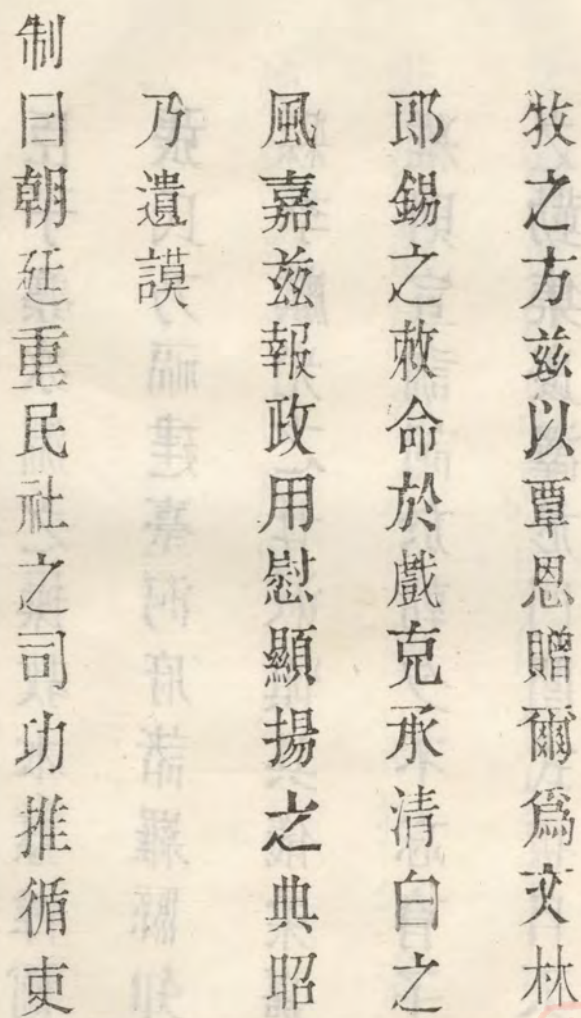 牧之方兹以覃恩贈爾爲文林
郎錫之敕命於戲克承清白之
風嘉兹報政用慰顯揚之典昭
乃遺謨
制曰朝廷重民社之司功推循吏